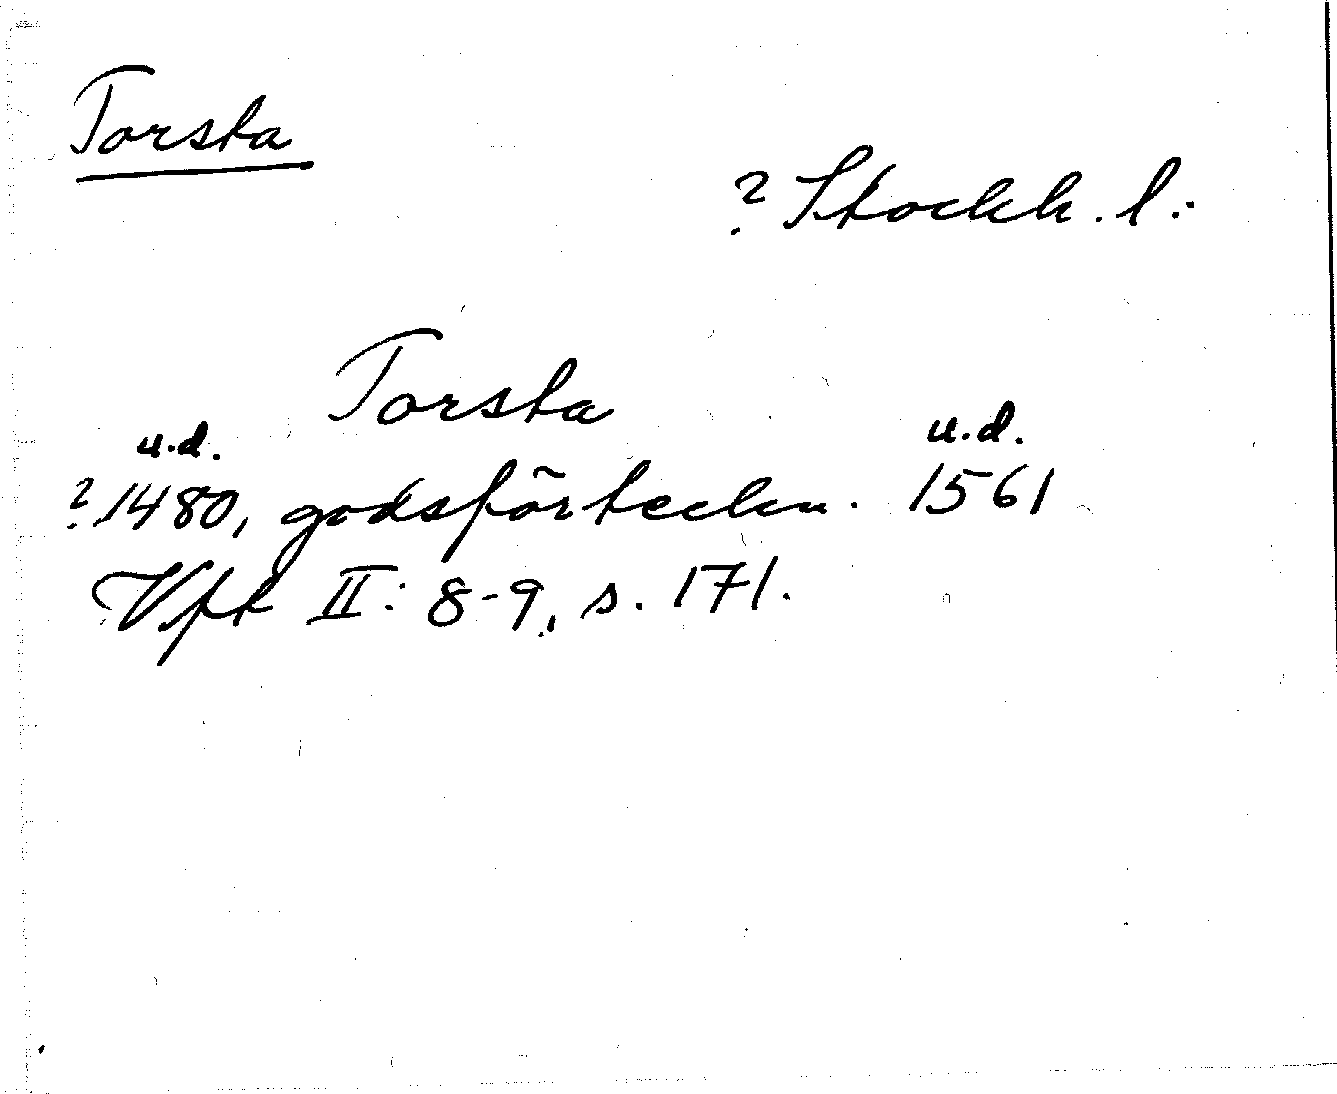 Torsta
? Stockh. l.:
Torsta
u.d. u.d.
? 1480, godsförteckn. 1561
Vfk II: 8-9, s. 171.